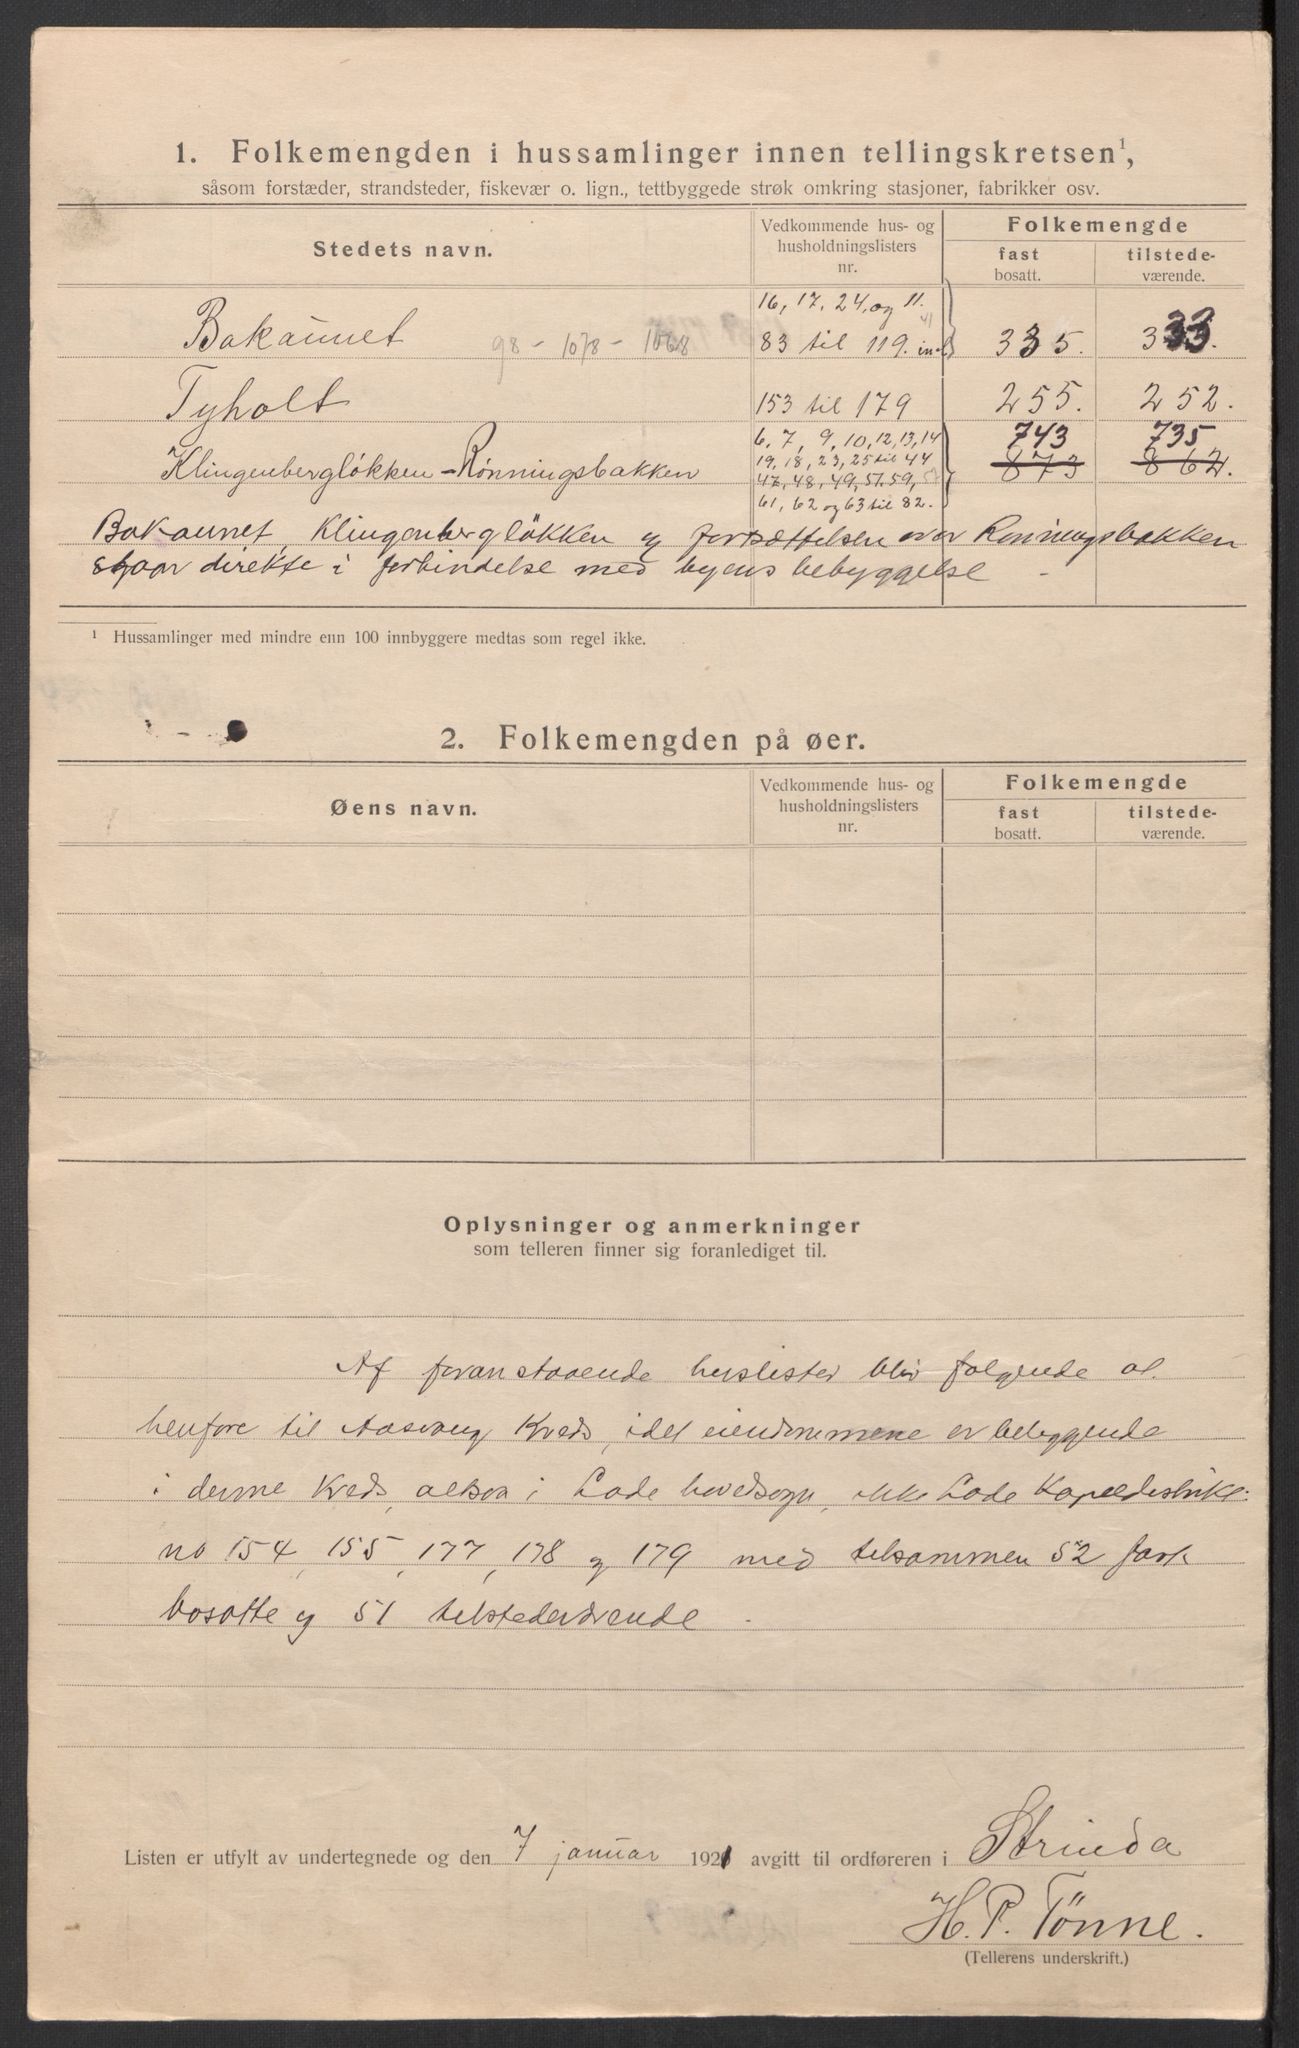 1. Folkemengden i hussamlinger innen tellingskretsen¹,
såsom forstæder, strandsteder, fiskevær o. lign., tettbyggede strøk omkring stasjoner, fabrikker osv.
Stedets navn. Vedkommende hus- og husholdningslisters nr. Folkemengde
fast bosatt. tilstede-værende.
16, 17, 24, og 11.
Bakaunet 98 - 1078 - 1068 83 til 119. incl 335. 333.
Tyholt 153 til 179 255. 252.
6, 7, 9, 10, 12, 13, 14 743 735
Klingenbergløkken - Rønningsbakken 19, 18, 23, 25 til 44 873 862.
47, 48, 49, 57, 59,
61, 62 og 63 til 82.
Bakaunet, Klingenbergløkken og fortsættelsen over Rønningsbakken
staar direkte i forbindelse med byens bebyggelse -
¹ Hussamlinger med mindre enn 100 innbyggere medtas som regel ikke.
2. Folkemengden på øer.
Øens navn. Vedkommende hus- og husholdningslisters nr. Folkemengde
fast bosatt. tilstede-værende.
Oplysninger og anmerkninger
som telleren finner sig foranlediget til.
Af foranstaaende huslister blir følgende at
henføre til Aasvang Kreds, idet eiendommene er beliggende
i denne Kreds, altsaa i Lade hovedsogn, ikke Lade Kapeldistrikt:
no 154, 155, 177, 178 og 179 med tilsammen 52 fast
bosatte og 51 tilstedeværende.
Listen er utfylt av undertegnede og den 7 januar 1921 avgitt til ordføreren i Strinda
H. P. Tönne.
(Tellerens underskrift.)